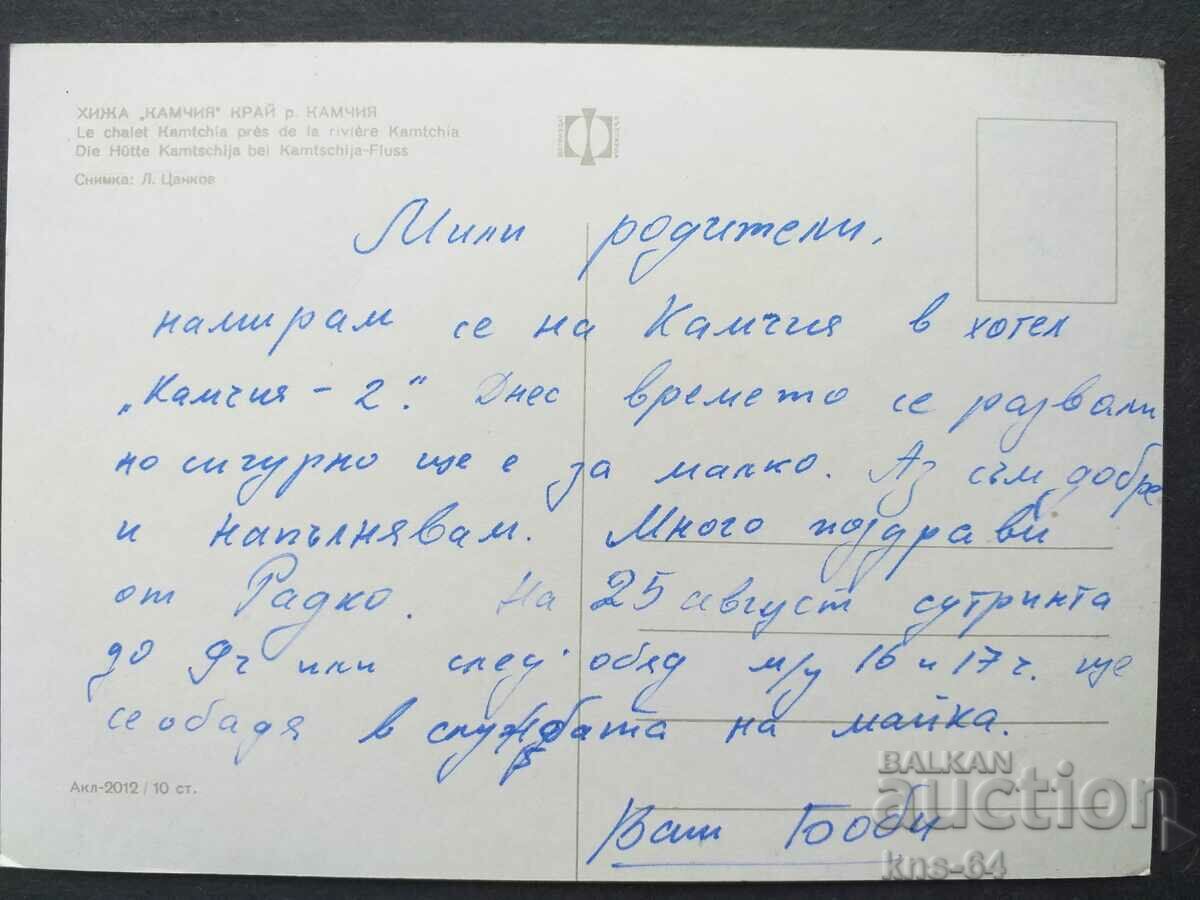 ХИЖА „КАМЧИЯ" КРАЙ р. КАМЧИЯ
Le chalet Kamtchia près de la rivière Kamtchia
Die Hütte Kamtschija bei Kamtschija-Fluss
Снимка: Л. Цанков
Мили родители,
намирам се на Камчия в хотел
„Камчия - 2". Днес времето се развали
но сигурно ще е за малко. Аз съм добре
и напълнявам. Много поздрави
от Радко. На 25 август сутринта
до 9ч или след обяд м/у 16 и 17 ч. ще
се обадя в службата на майка.
Ваш Боби
Акл-2012 / 10 ст.
BALKAN
auction
kns-64